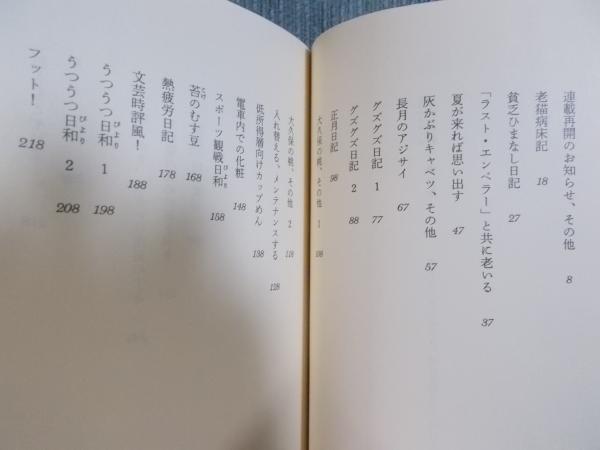 連載再開のお知らせ、その他 8
老猫病床記 18
貧乏ひまなし日記 27
「ラスト・エンペラー」と共に老いる 37
夏が来れば思い出す 47
灰かぶりキャベツ、その他 57
長月のアジサイ 67
グズグズ日記 1 77
グズグズ日記 2 88
正月日記 98
大久保の桃、その他 1 108
大久保の桃、その他 2 118
入れ替える、メンテナンスする 128
低所得層向けカップめん 138
電車内での化粧 148
スポーツ観戦日和 びより 158
苔のむす豆 こけ 168
熱疲労日記 178
文芸時評風! 188
うつうつ日和 びより 1 198
うつうつ日和 びより 2 208
フット! 218